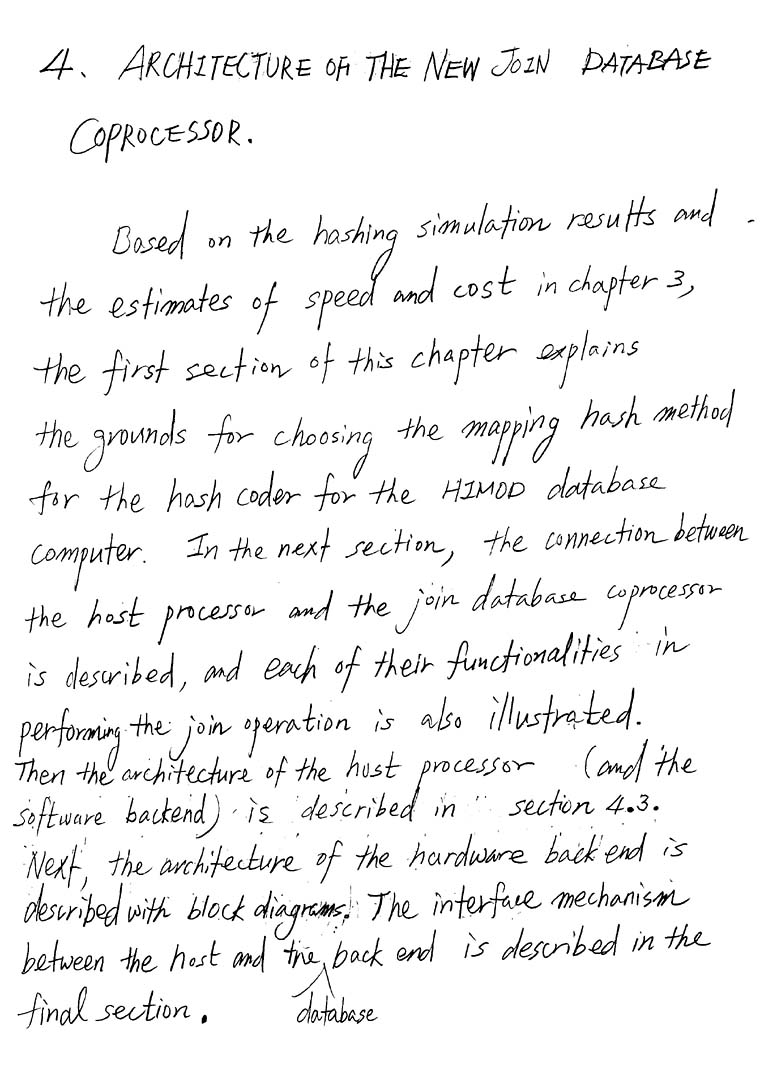 4. ARCHITECTURE OF THE NEW JOIN DATABASE
COPROCESSOR.
Based on the hashing simulation results and
the estimates of speed and cost in chapter 3,
the first section of this chapter explains
the grounds for choosing the mapping hash method
for the hash coder for the HIMOD database
computer. In the next section, the connection between
the host processor and the join database coprocessor
is described, and each of their functionalities in
performing the join operation is also illustrated.
Then the architecture of the host processor (and the
software backend) is described in section 4.3.
Next, the architecture of the hardware back end is
described with block diagrams. The interface mechanism
between the host and the back end is described in the
final section. database